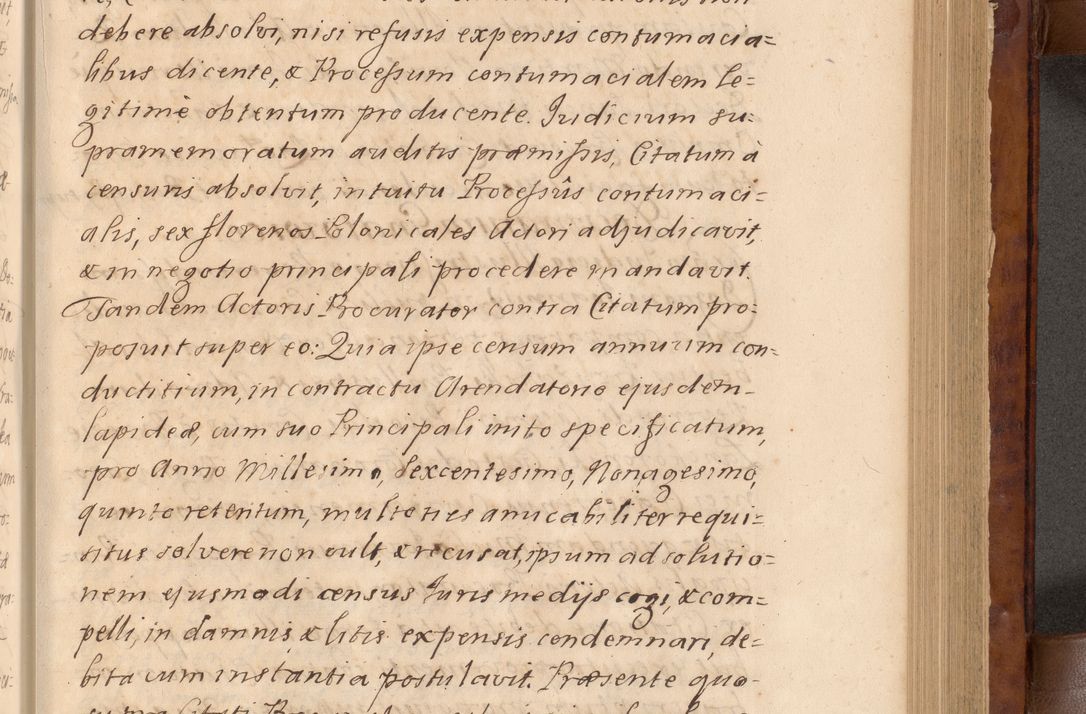 debere absolvi, nisi refusis expensis contumacia=
libus dicente, & Processum contumacialem le=
gitimè obtentum producente. Judicium su=
pramemoratum auditis præmissis, Citatum à
censuris absolvit, intuitu Processûs contumaci=
alis, sex florenos Polonicales Actori adjudicavit,
& in negotio principali procedere mandavit.
Tandem Actoris Procurator contra Citatum pro=
posuit super eo: Quia ipse censum annuum con=
ductitium, in contractu Arendatorio ejusdem
lapideæ, cum suo Principali inito specificatum,
pro Anno Millesimo, Sexcentesimo, Nonagesimo,
quinto retentum, multoties amicabiliter requi=
situs solvere non vult, & recusat, ipsum ad solutio=
nem ejusmodi census Juris medijs cogi, & com=
pelli, in damnis, & litis expensis condemnari, de=
bita cum instantia postulavit. Præsente quo=